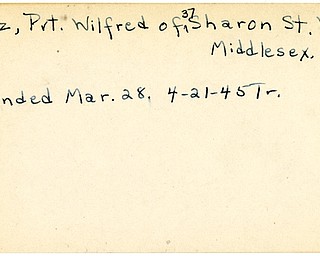 z, Pvt. Wilfred of 37 Sharon St.
Middlesex.
nded Mar. 28. 4-21-45 Tr.